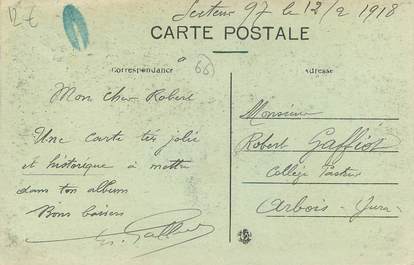 12€
Secteur 97 le 12/2 1918
CARTE POSTALE
Correspondance
66
Adresse
Mon cher Robert
Une carte très jolie
et historique à mettre
dans ton album
Bons baisers
Monsieur
Robert Gaffiot
Collège Pasteur
Arbois - Jura